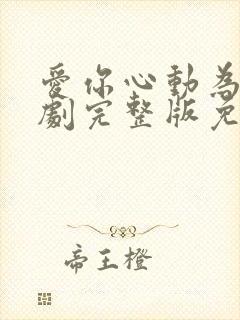 愛你心動為
劇完整版免
帝王橙